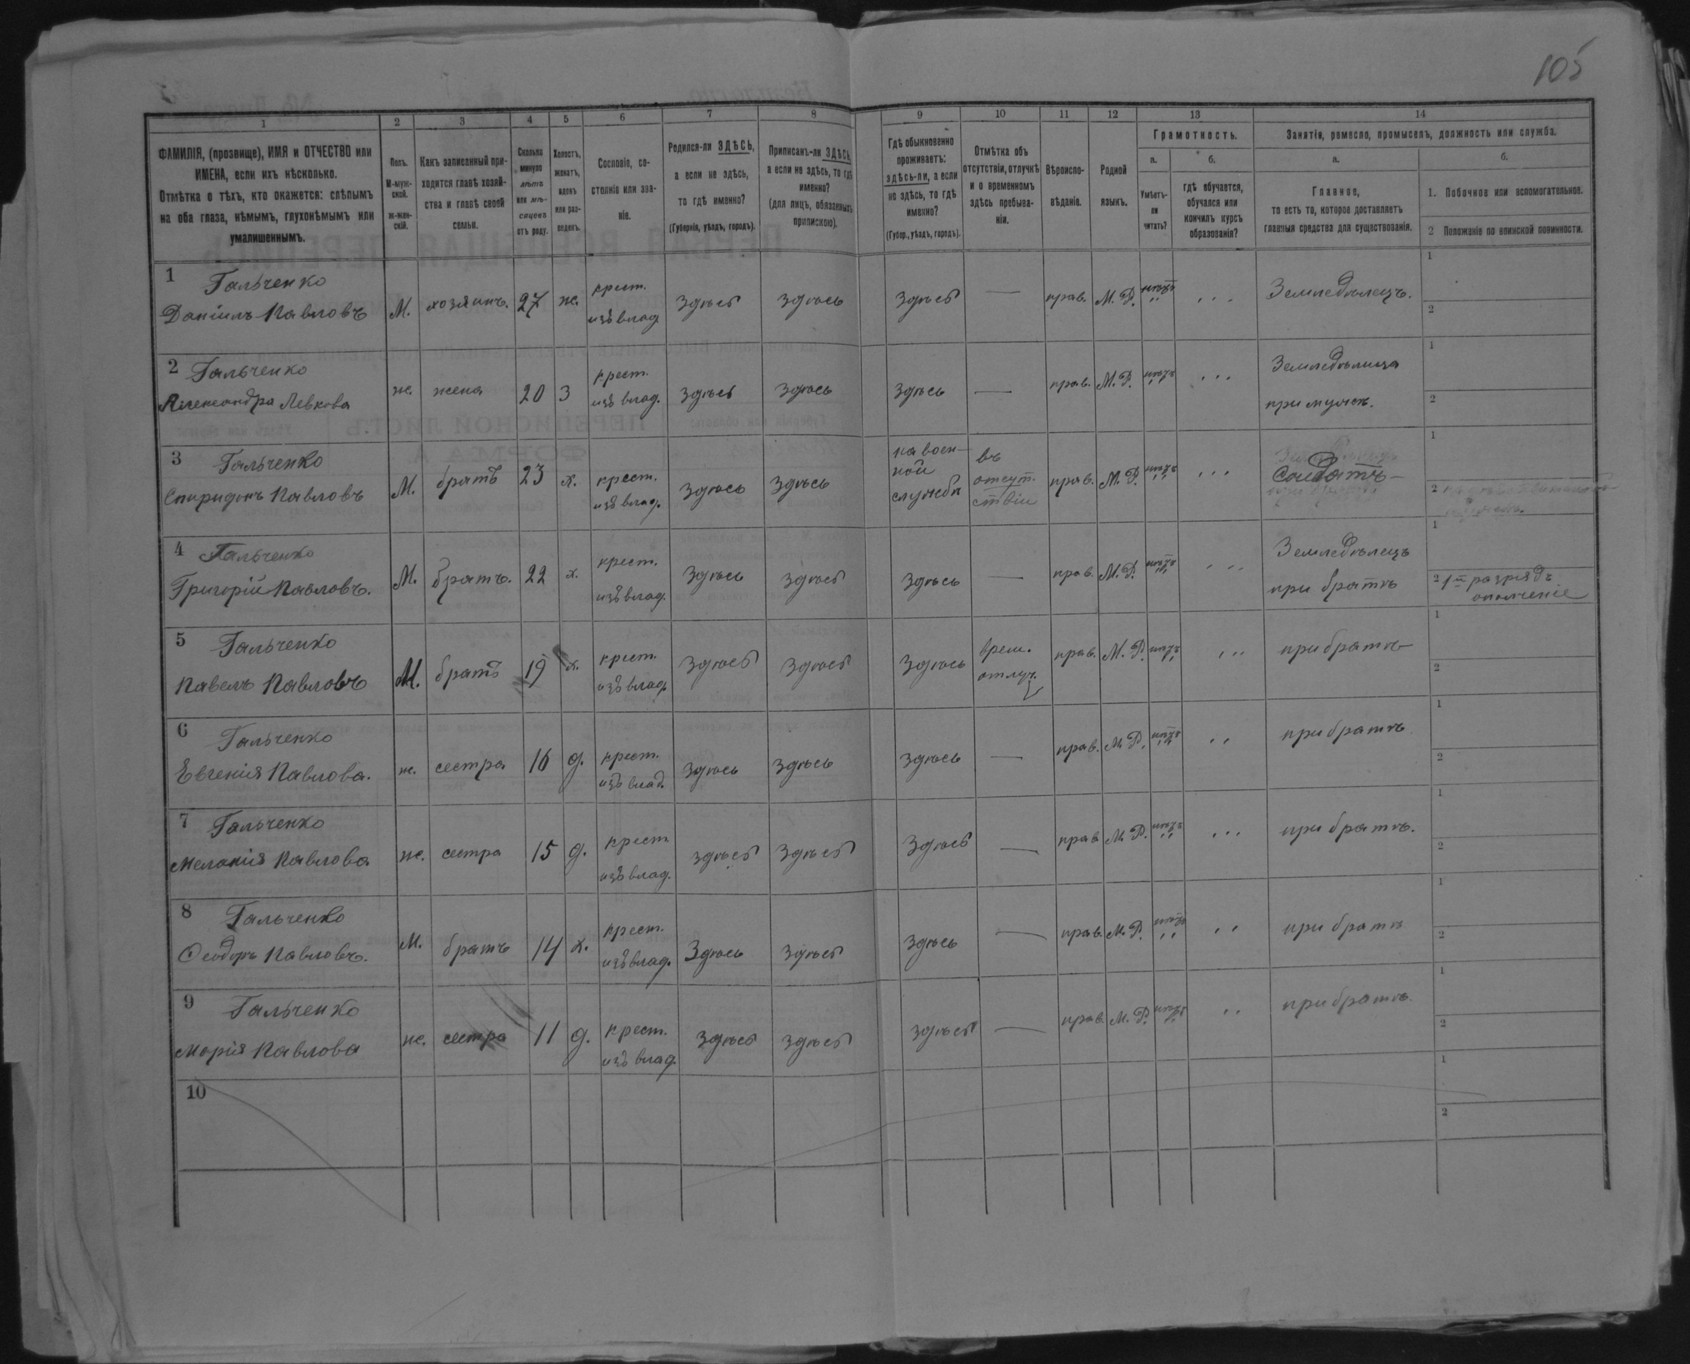 105
1 2 3 4 5 6 7 8 9 10 11 12 13 14
ФАМИЛІЯ, (прозвище), ИМЯ и ОТЧЕСТВО или ИМЕНА, если ихъ нѣсколько.
Отмѣтка о тѣхъ, кто окажется: слѣпымъ на оба глаза, нѣмымъ, глухонѣмымъ или умалишеннымъ.
Полъ.
М-мужской.
ж-женскій.
Какъ записанный приходится главѣ хозяйства и главѣ своей семьи.
Сколько минуло лѣтъ или мѣсяцевъ отъ роду.
Холостъ, женатъ, вдовъ или разведенъ.
Сословіе, состояніе или званіе.
Родился-ли ЗДѢСЬ, а если не здѣсь, то гдѣ именно?
(Губернія, уѣздъ, городъ).
Приписанъ-ли ЗДѢСЬ, а если не здѣсь, то гдѣ именно?
(для лицъ, обязанныхъ припискою).
Гдѣ обыкновенно проживаетъ: здѣсь-ли, а если не здѣсь, то гдѣ именно?
(Губер., уѣздъ, городъ).
Отмѣтка объ отсутствіи, отлучкѣ и о временномъ здѣсь пребываніи.
Вѣроисповѣданіе.
Родной языкъ.
Грамотность.
а.
Умѣетъ-ли читать?
б.
гдѣ обучается, обучался или кончилъ курсъ образованія?
Занятіе, ремесло, промыселъ, должность или служба.
а.
Главное,
то есть то, которое доставляетъ главныя средства для существованія.
б.
1. Побочное или вспомогательное.
2 Положеніе по воинской повинности.
1 Гальченко
Даніилъ Павловъ М. хозяинъ. 27 ж. крест. изъ влад. здѣсь здѣсь здѣсь — прав. М. Р. нѣтъ Земледѣлецъ. 1 2
2 Гальченко
Александра Левкова ж. жена 20 З крест. изъ влад. здѣсь здѣсь здѣсь — прав. М. Р. нѣтъ Земледѣлица при мужѣ. 1 2
3 Гальченко
Спиридонъ Павловъ М. братъ 23 х. крест. изъ влад. здѣсь здѣсь на воен-ной службѣ въ отсут-ствіи прав. М. Р. нѣтъ Солдатъ 1 2
4 Гальченко
Григорій Павловъ. М. братъ. 22 х. крест. изъ влад. здѣсь здѣсь здѣсь — прав. М. Р. нѣтъ Земледѣлецъ при братѣ 1 2 1й разрядъ ополченіе
5 Гальченко
Павелъ Павловъ М. братъ 19 х. крест. изъ влад. здѣсь здѣсь здѣсь врем. отлуч. прав. М. Р. нѣтъ при братѣ 1 2
6 Гальченко
Евгенія Павлова. ж. сестра 16 д. крест. изъ влад. здѣсь здѣсь здѣсь — прав. М. Р. нѣтъ при братѣ 1 2
7 Гальченко
Меланія Павлова ж. сестра 15 д. крест изъ влад. здѣсь здѣсь здѣсь — прав М. Р. нѣтъ при братѣ. 1 2
8 Гальченко
Феодоръ Павловъ. М. братъ 14 х. крест. изъ влад. здѣсь здѣсь здѣсь — прав. М. Р. нѣтъ при братѣ 1 2
9 Гальченко
Марія Павлова ж. сестра 11 д. крест. изъ влад. здѣсь здѣсь здѣсь — прав. М. Р. нѣтъ при братѣ. 1 2
10 1 2